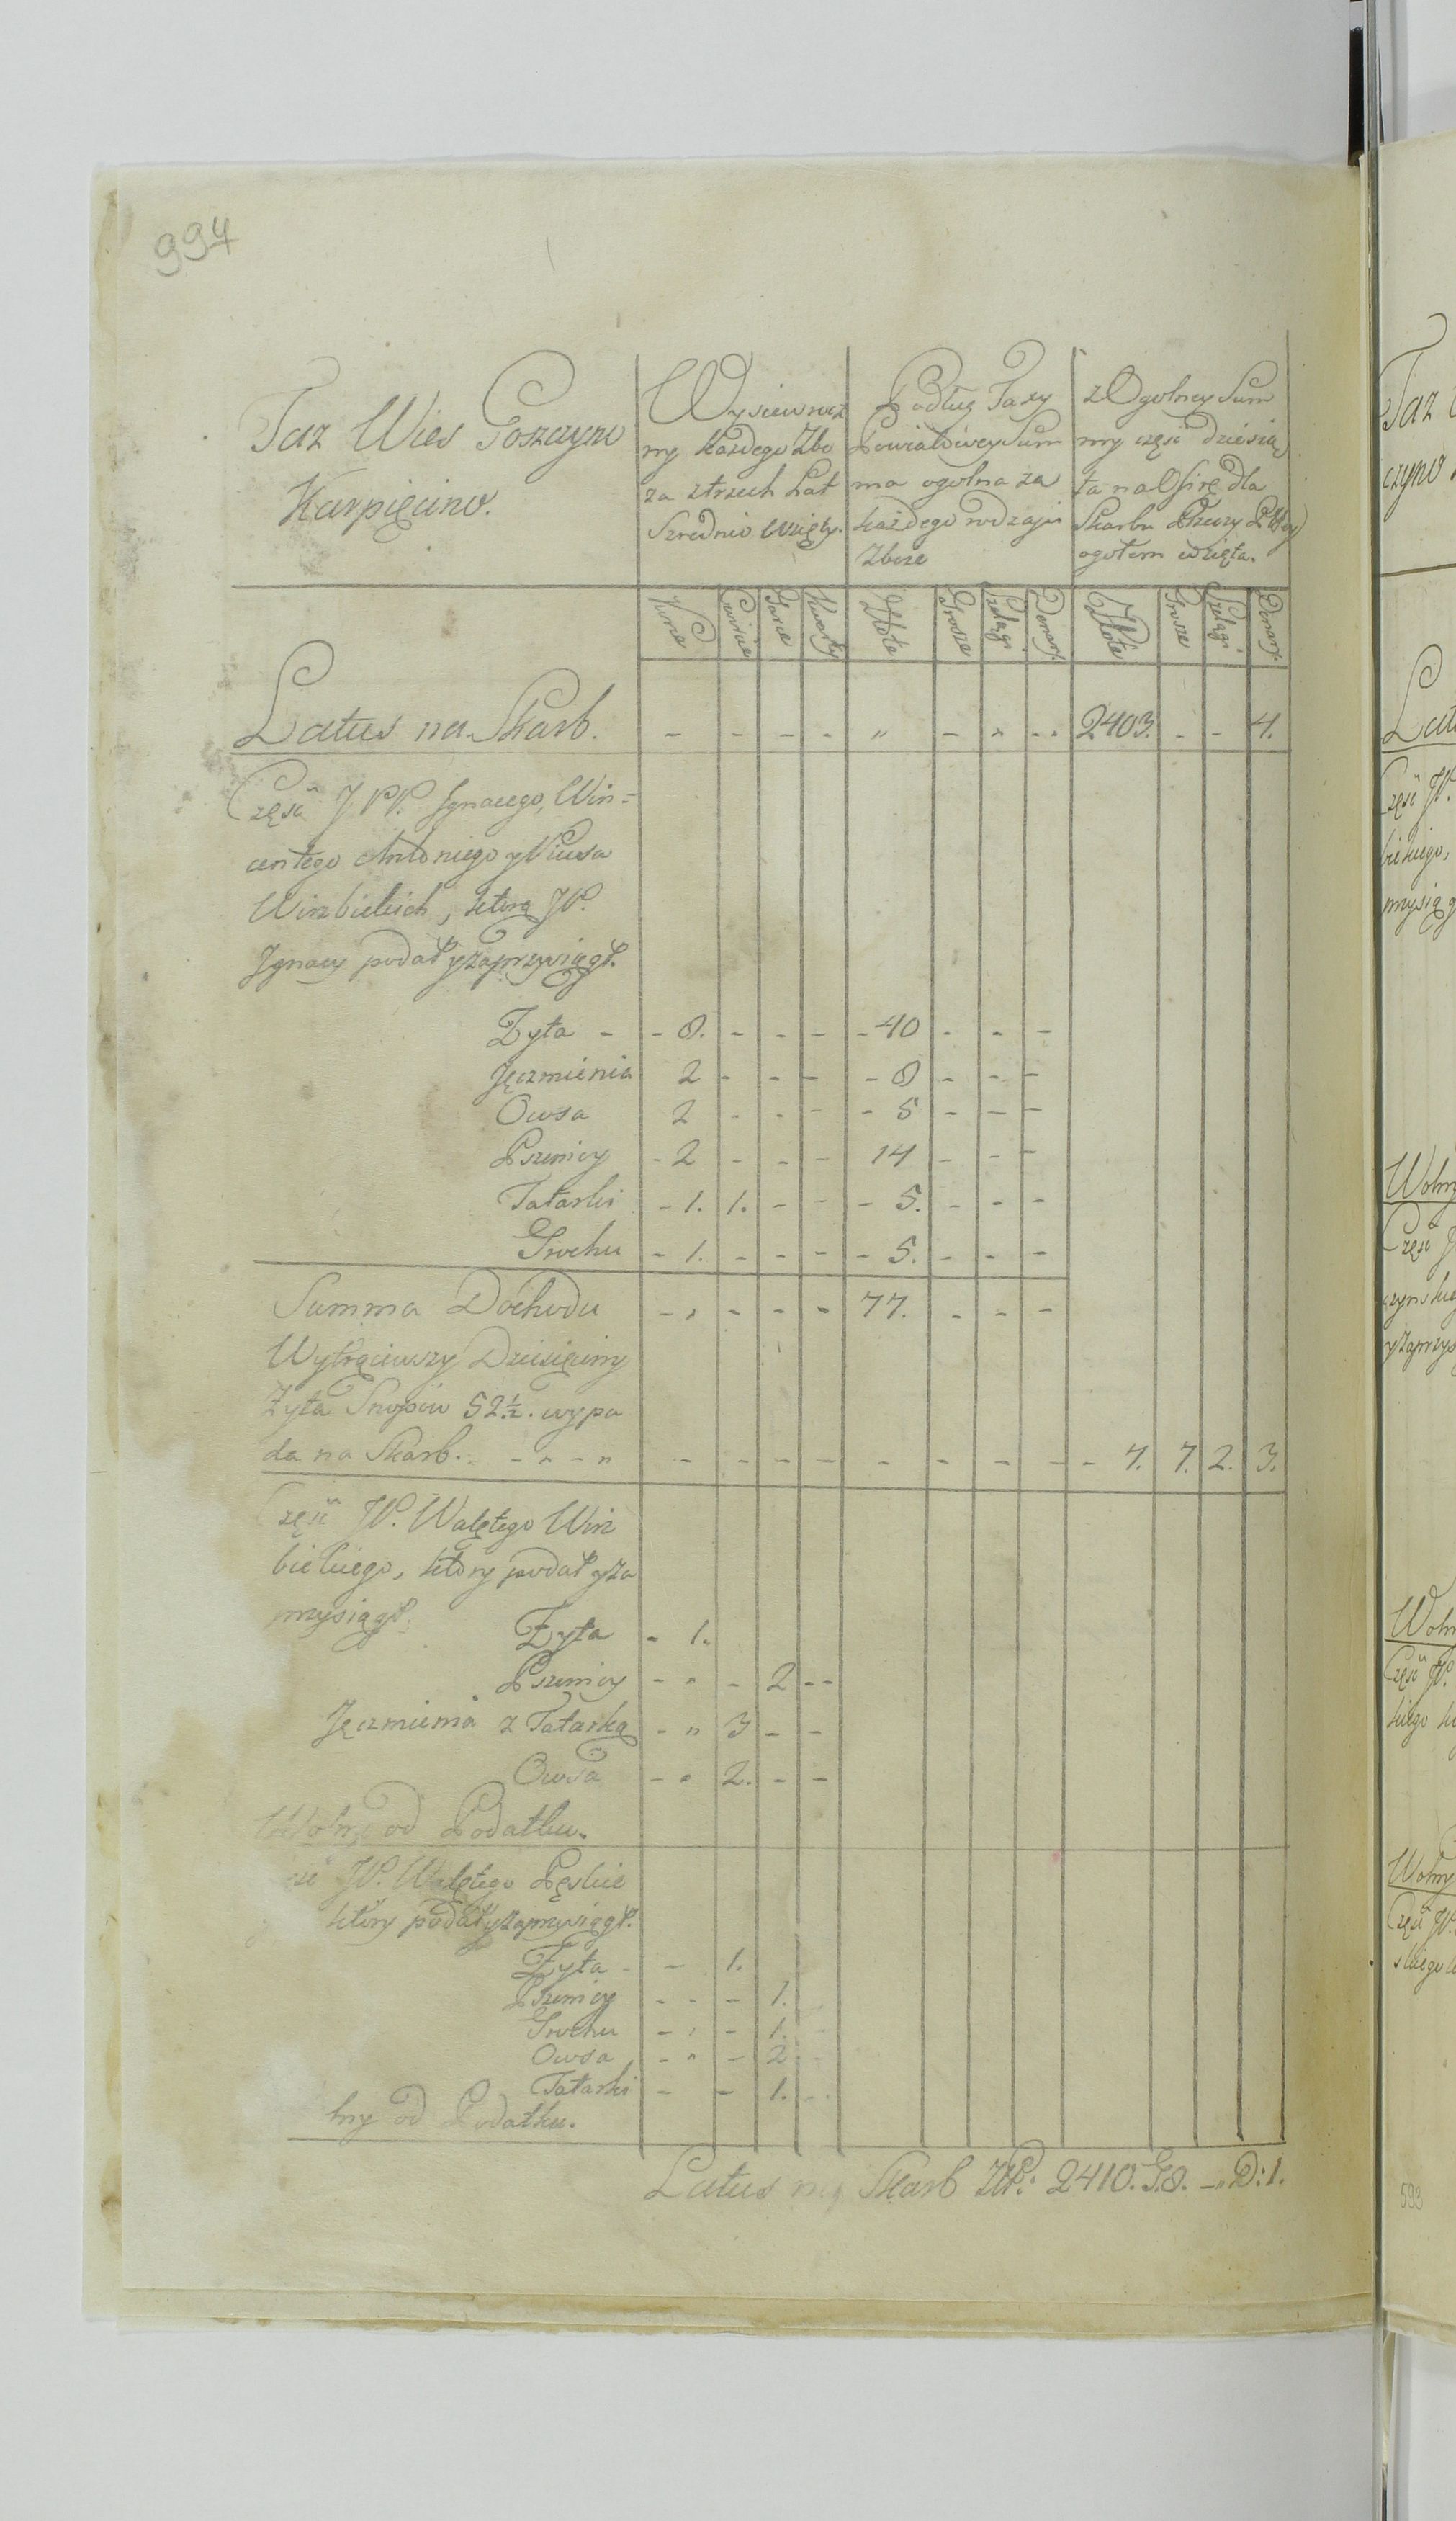 994
Taz Wies Goszczyno
Karpięcino.
Wysiew rocz
ny każdego Zbo
za ztrzech Lat
Srzednio wzięty.
Podług Taxy
Powiatowey Sum
ma ogolna za
każdego rodzaju
Zboże
z Ogolney Sum
my częśc dziesią
ta na Ofirę dla
Skarbu Rzeczy
ogołem wzięta.
Korce Cwircie Garce Kwarty Złote Grosze Szelągi Denary. Złote Grosze Szelągi Denary.
Latus na Skarb. - - - - " - " - - 2403. - - 4.
Częśc JPP. Ignacego, Win=
centego Antoniego y Piusa
Wirzbickich, ktorą JP.
Ignacy podał y zaprzysiągł.
Zyta - - 8. - - - - 40 - - -
Jęczmienia 2 - - - - 8 - - -
Owsa 2 - - - - 5 - - -
Pszenicy - 2 - - - 14 - - -
Tatarki - 1. 1. - - - 5. - - -
Grochu - 1. - - - - 5. - - -
Summa Dochodu - , - - - 77. - - -
Wytrąciwszy Dziesięciny
Zyta Snopow 52 ½. wypa
da na Skarb. - " - " - - - - - - - - - 7. 7. 2. 3.
zęśc JP. Walętego Wirz
bickiego, ktory podał y za
przysiągł.
Zyta - 1.
Pszenicy - " - 2 - -
Jęczmienia z Tatarką - " 3 - -
Owsa - " 2. - -
Wolny od Podatku.
sc JP. Walętego
ktory podał y zaprzysiągł.
Zyta - - 1.
Pszenicy - - - 1.
Grochu - , - 1.
Owsa - " - 2
Tatarki - - 1. - -
lny od Podatku.
Latus na Skarb ZłP: 2410. G. 8. - " D: 1.
Taz
czyno
Latu
Częśc JP.
bickiego,
przysiąg
Wolny
Częśc J
y zaprzys
Woln
Częśc JP.
kiego
Wolny
Częśc JP.
593